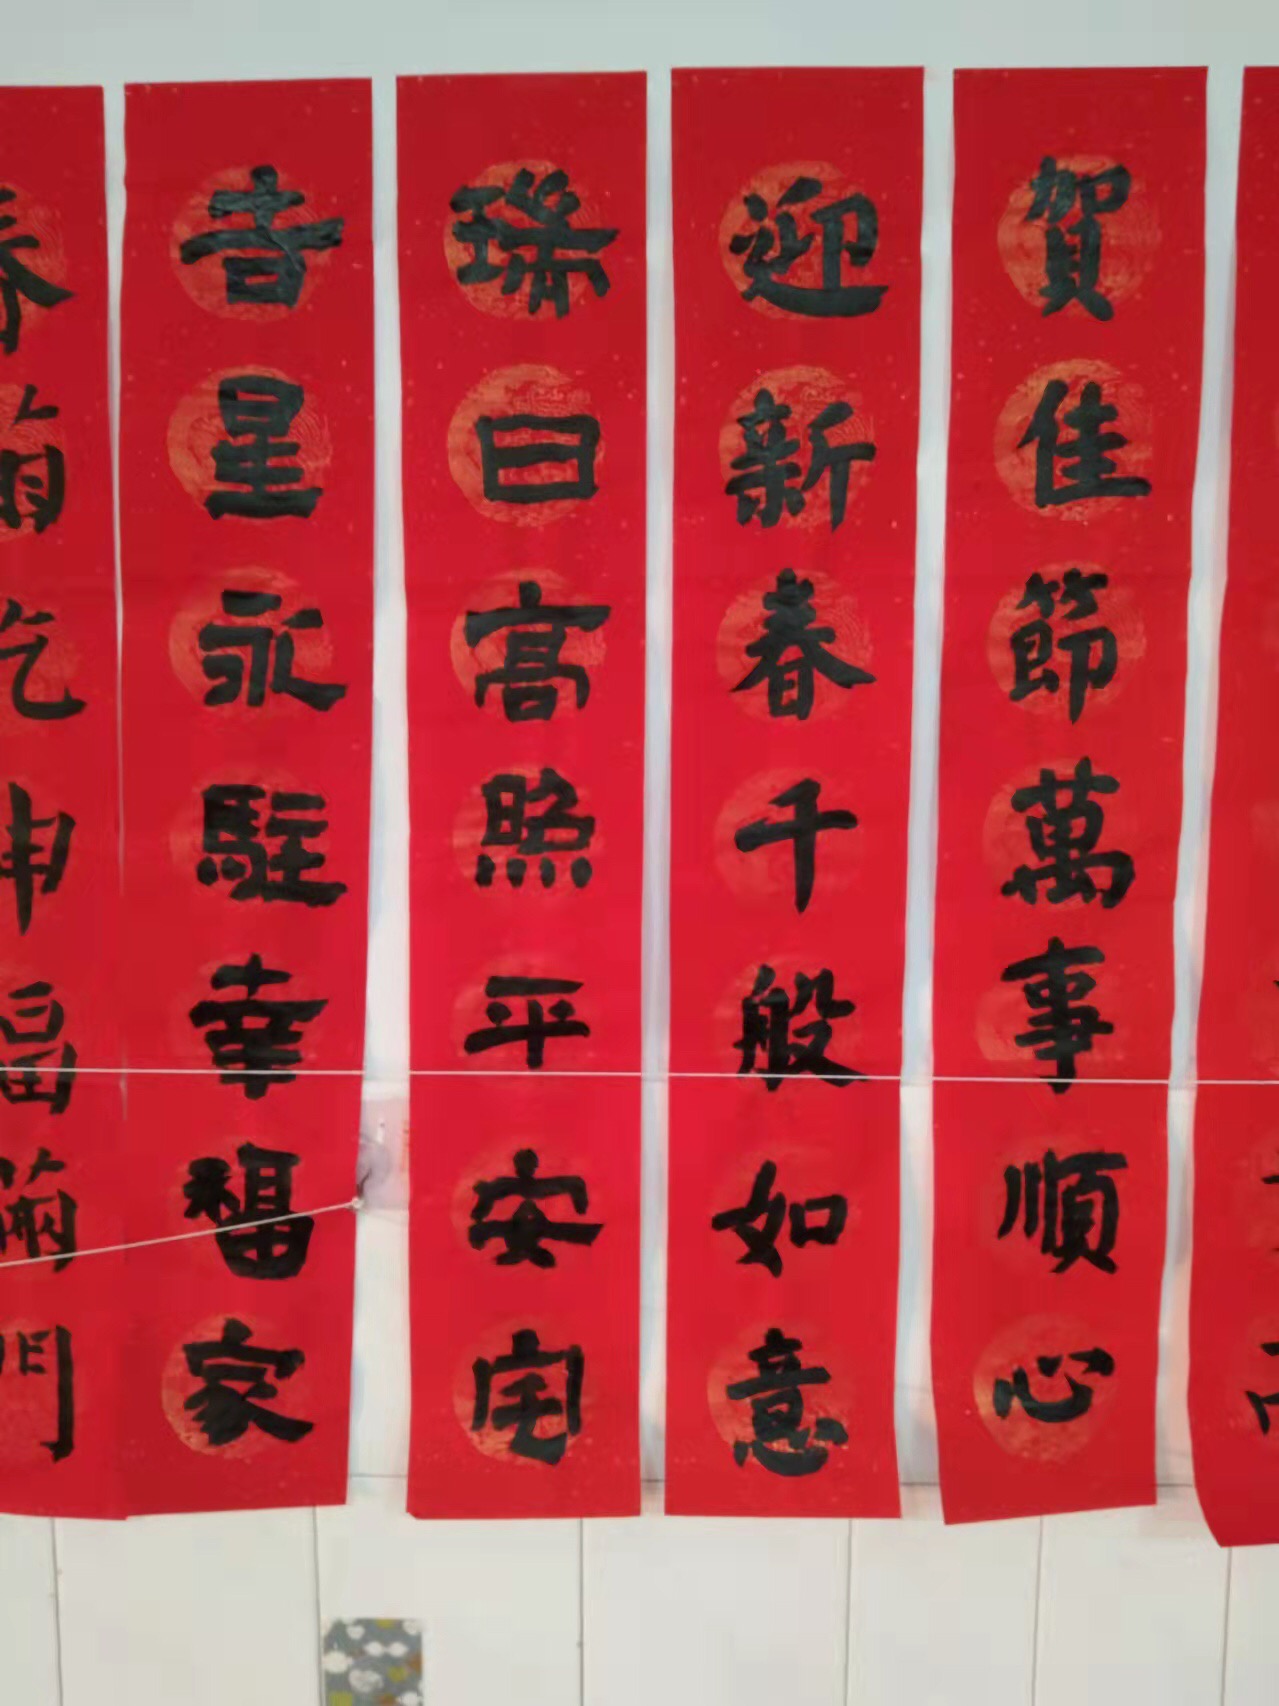 賀佳節萬事順心
迎新春千般如意
瑞日高照平安宅
吉星永駐幸福家
春滿乾坤福滿門